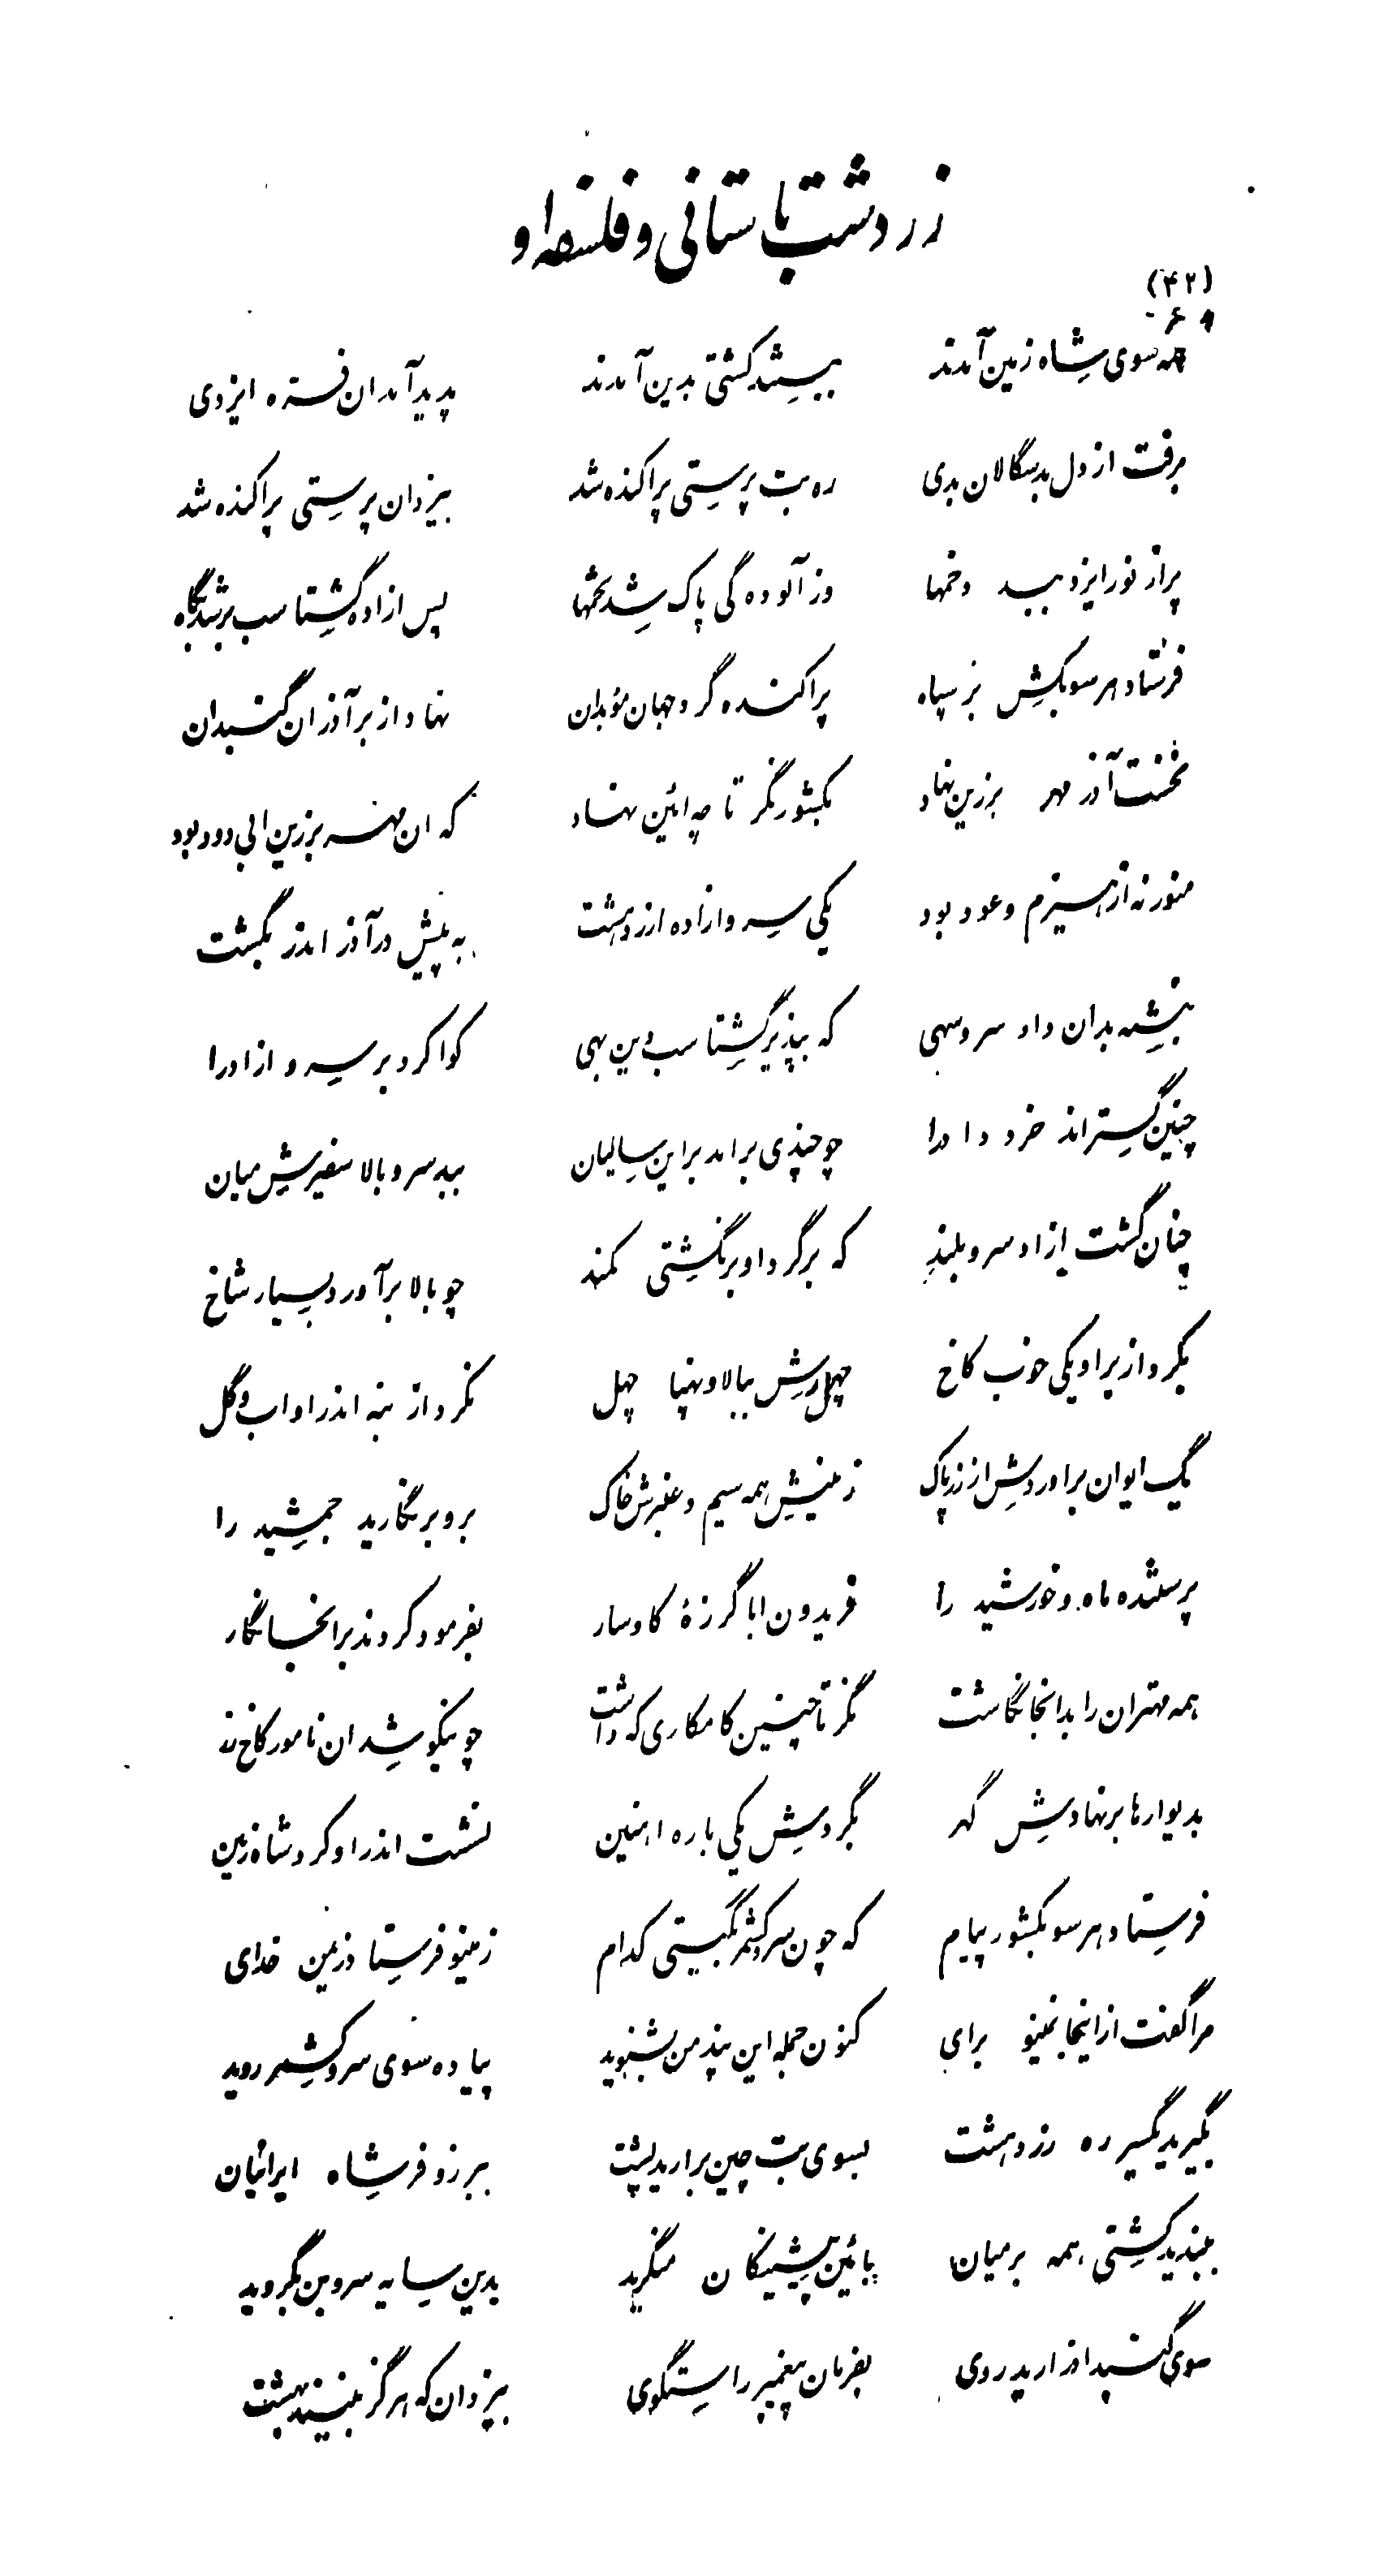 زردشت باستانی و فلسفه او
(۴۲)
۶۹
همه سوی شاه زمین آمدند ببستند کشتی بدین آمدند پدید آمد ان فره ایزدی
برفت از دل بدسگالان بدی ره بت پرستی پراکنده شد بیزدان پرستی پراکنده شد
پر از نور ایزد ببد دخمها وز آلوده گی پاک شد تخمها پس ازاده گشتاسب برشد بگاه
فرستاد هر سو بکشور سپاه پراکنده گرد جهان مؤبدان نهاد از بر آذران گنبدان
نخست آذر مهر برزین نهاد بکشور نگر تا چه ائین نهاد که ان مهر برزین ابی دود بود
منور نه از هیزم و عود بود یکی سرو ازاده از زردهشت به پیش در آذر اندر بکشت
نبشته بدان داد سرو سهی که بپذیر گشتاسب دین بهی کوا کرد بر سرو ازاد را
چنین گستراند خرد داد را چو چندی برامد براین سالیان ببد سرو بالا سطبرش میان
چنان گشت ازاد سرو بلند که برگرد او برنگشتی کمند چو بالا برآورد بسیار شاخ
بکرد از بر او یکی خوب کاخ چهل رش ببالا و پهنا چهل نکرد از بنه اندر او اب و گل
یک ایوان براوردش از زر پاک زمینش همه سیم و عنبرش خاک برو بر نگارید جمشید را
پرستنده ماه و خورشید را فریدون ابا گرزهٔ کاوسار بفرمود کردند برانجا نگار
همه مهتران را بدانجا نگاشت نگر تا چنین کامکاری که داشت چو نیکو شد ان نامور کاخ زر
بدیوارها برنهادش گهر بگردش یکی باره اهنین نشست اندر او کرد شاه زمین
فرستاد هر سو بکشور پیام که چون سرو کشمر بگیتی کدام ز مینو فرستاد زی من خدای
مرا گفت از اینجا بمینو برای کنون جمله این پند من بشنوید پیاده سوی سرو کشمر روید
بگیرید یکسر ره زردهشت بسوی بت چین برارید پشت ببرز و فر شاه ایرانیان
ببندید کشتی همه بر میان بائین پیشینکان منگرید بدین سایه سرو بن بگروید
سوی گنبد اذر ارید روی بفرمان پیغمبر راستگوی بیزدان که هرگز نبیند بهشت